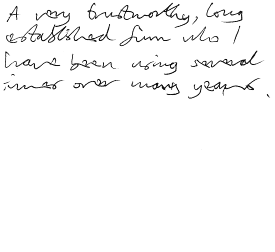 A very trustworthy, long
established firm who I
have been using several
times over many years.